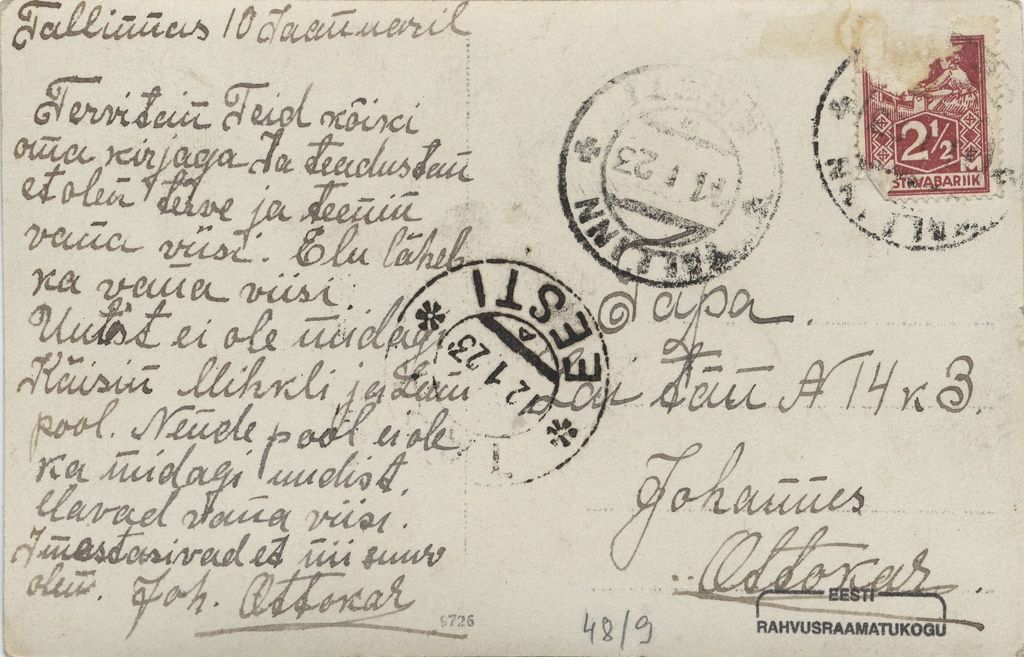 Tallinnas 10 Jaanuaril
Tervitain Teid kõiki
oma kirjaga Ja teadustan
et olen terve ja teenin
vana viisi. Elu läheb
ka vana viisi.
Uutist ei ole midagi
Käisin Mihkli ja Jaani
pool. Nende pool ei ole
ka midagi uudist.
elavad vana viisi.
Imestasivad et nii suur
olen. Joh. Ottokar
9726
TALLINN
EESTI
11 1 23
2½
STIVABARIIK
TALLINN
EESTI
A
12 1 23
Tapa.
tän A 14 k 3.
Johannes
Ottokar.
48/9
EESTI
RAHVUSRAAMATUKOGU